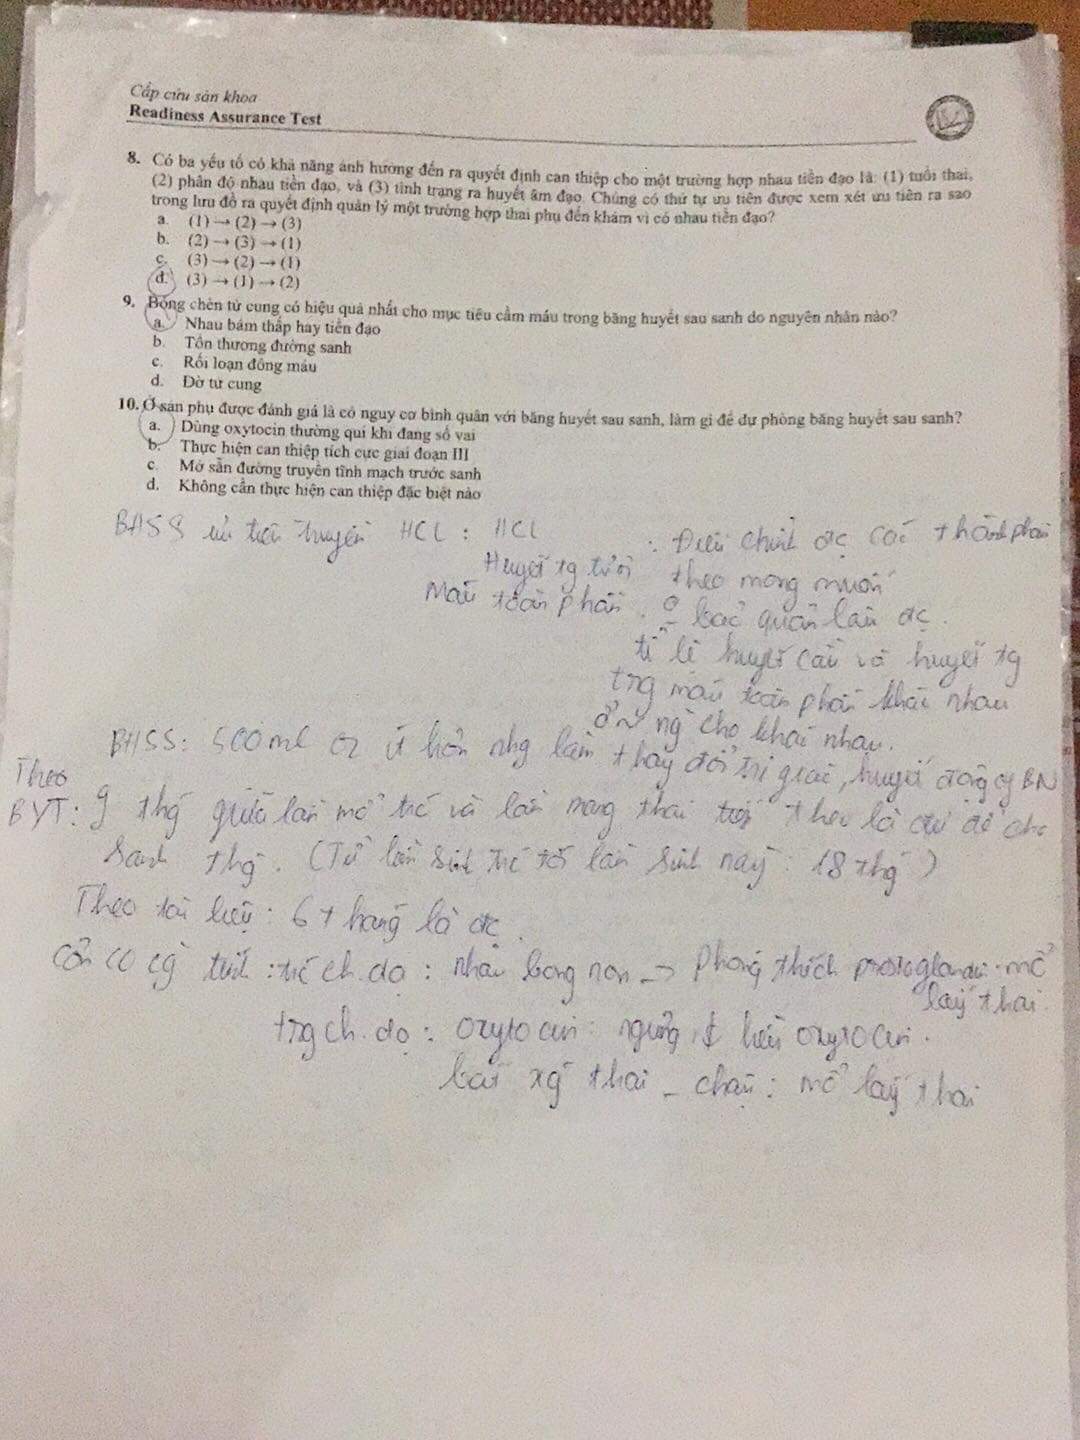 Cấp cứu sản khoa
Readiness Assurance Test
8. Có ba yếu tố có khả năng ảnh hưởng đến ra quyết định can thiệp cho một trường hợp nhau tiền đạo là: (1) tuổi thai,
(2) phân độ nhau tiền đạo, và (3) tình trạng ra huyết âm đạo. Chúng có thứ tự ưu tiên được xem xét ưu tiên ra sao
trong lưu đồ ra quyết định quản lý một trường hợp thai phụ đến khám vì có nhau tiền đạo?
a. (1) → (2) → (3)
b. (2) → (3) → (1)
c. (3) → (2) → (1)
d. (3) → (1) → (2)
9. Bóng chèn tử cung có hiệu quả nhất cho mục tiêu cầm máu trong băng huyết sau sanh do nguyên nhân nào?
a. Nhau bám thấp hay tiền đạo
b. Tổn thương đường sanh
c. Rối loạn đông máu
d. Đờ tử cung
10. Ở sản phụ được đánh giá là có nguy cơ bình quân với băng huyết sau sanh, làm gì để dự phòng băng huyết sau sanh?
a. Dùng oxytocin thường qui khi đang sổ vai
b. Thực hiện can thiệp tích cực giai đoạn III
c. Mở sẵn đường truyền tĩnh mạch trước sanh
d. Không cần thực hiện can thiệp đặc biệt nào
BHSS ưu tiên truyền HCL : HCL
Huyết tg tươi : Điều chỉnh đc các thành phần
theo mong muốn
Máu toàn phần : bảo quản lâu đc.
tỉ lệ huyết cầu và huyết tg
trg máu toàn phần khác nhau
ở ~ ng cho khác nhau.
BHSS: 500ml or ít hơn nhg làm thay đổi tri giác, huyết động BN
Theo
BYT: 9 thg giữa lần mổ trc và lần mang thai tiếp theo là đủ để cho
sanh thg. (Từ lần sinh trc tới lần sinh này : 18 thg)
Theo tài liệu : 6 tháng là đc.
Cơn co : trc ch.dạ : nhau bong non → phóng thích prostaglandin mổ
lấy thai.
trg ch. dạ : oxytocin : ngưng oxytocin.
bất xg thai - chậu : mổ lấy thai